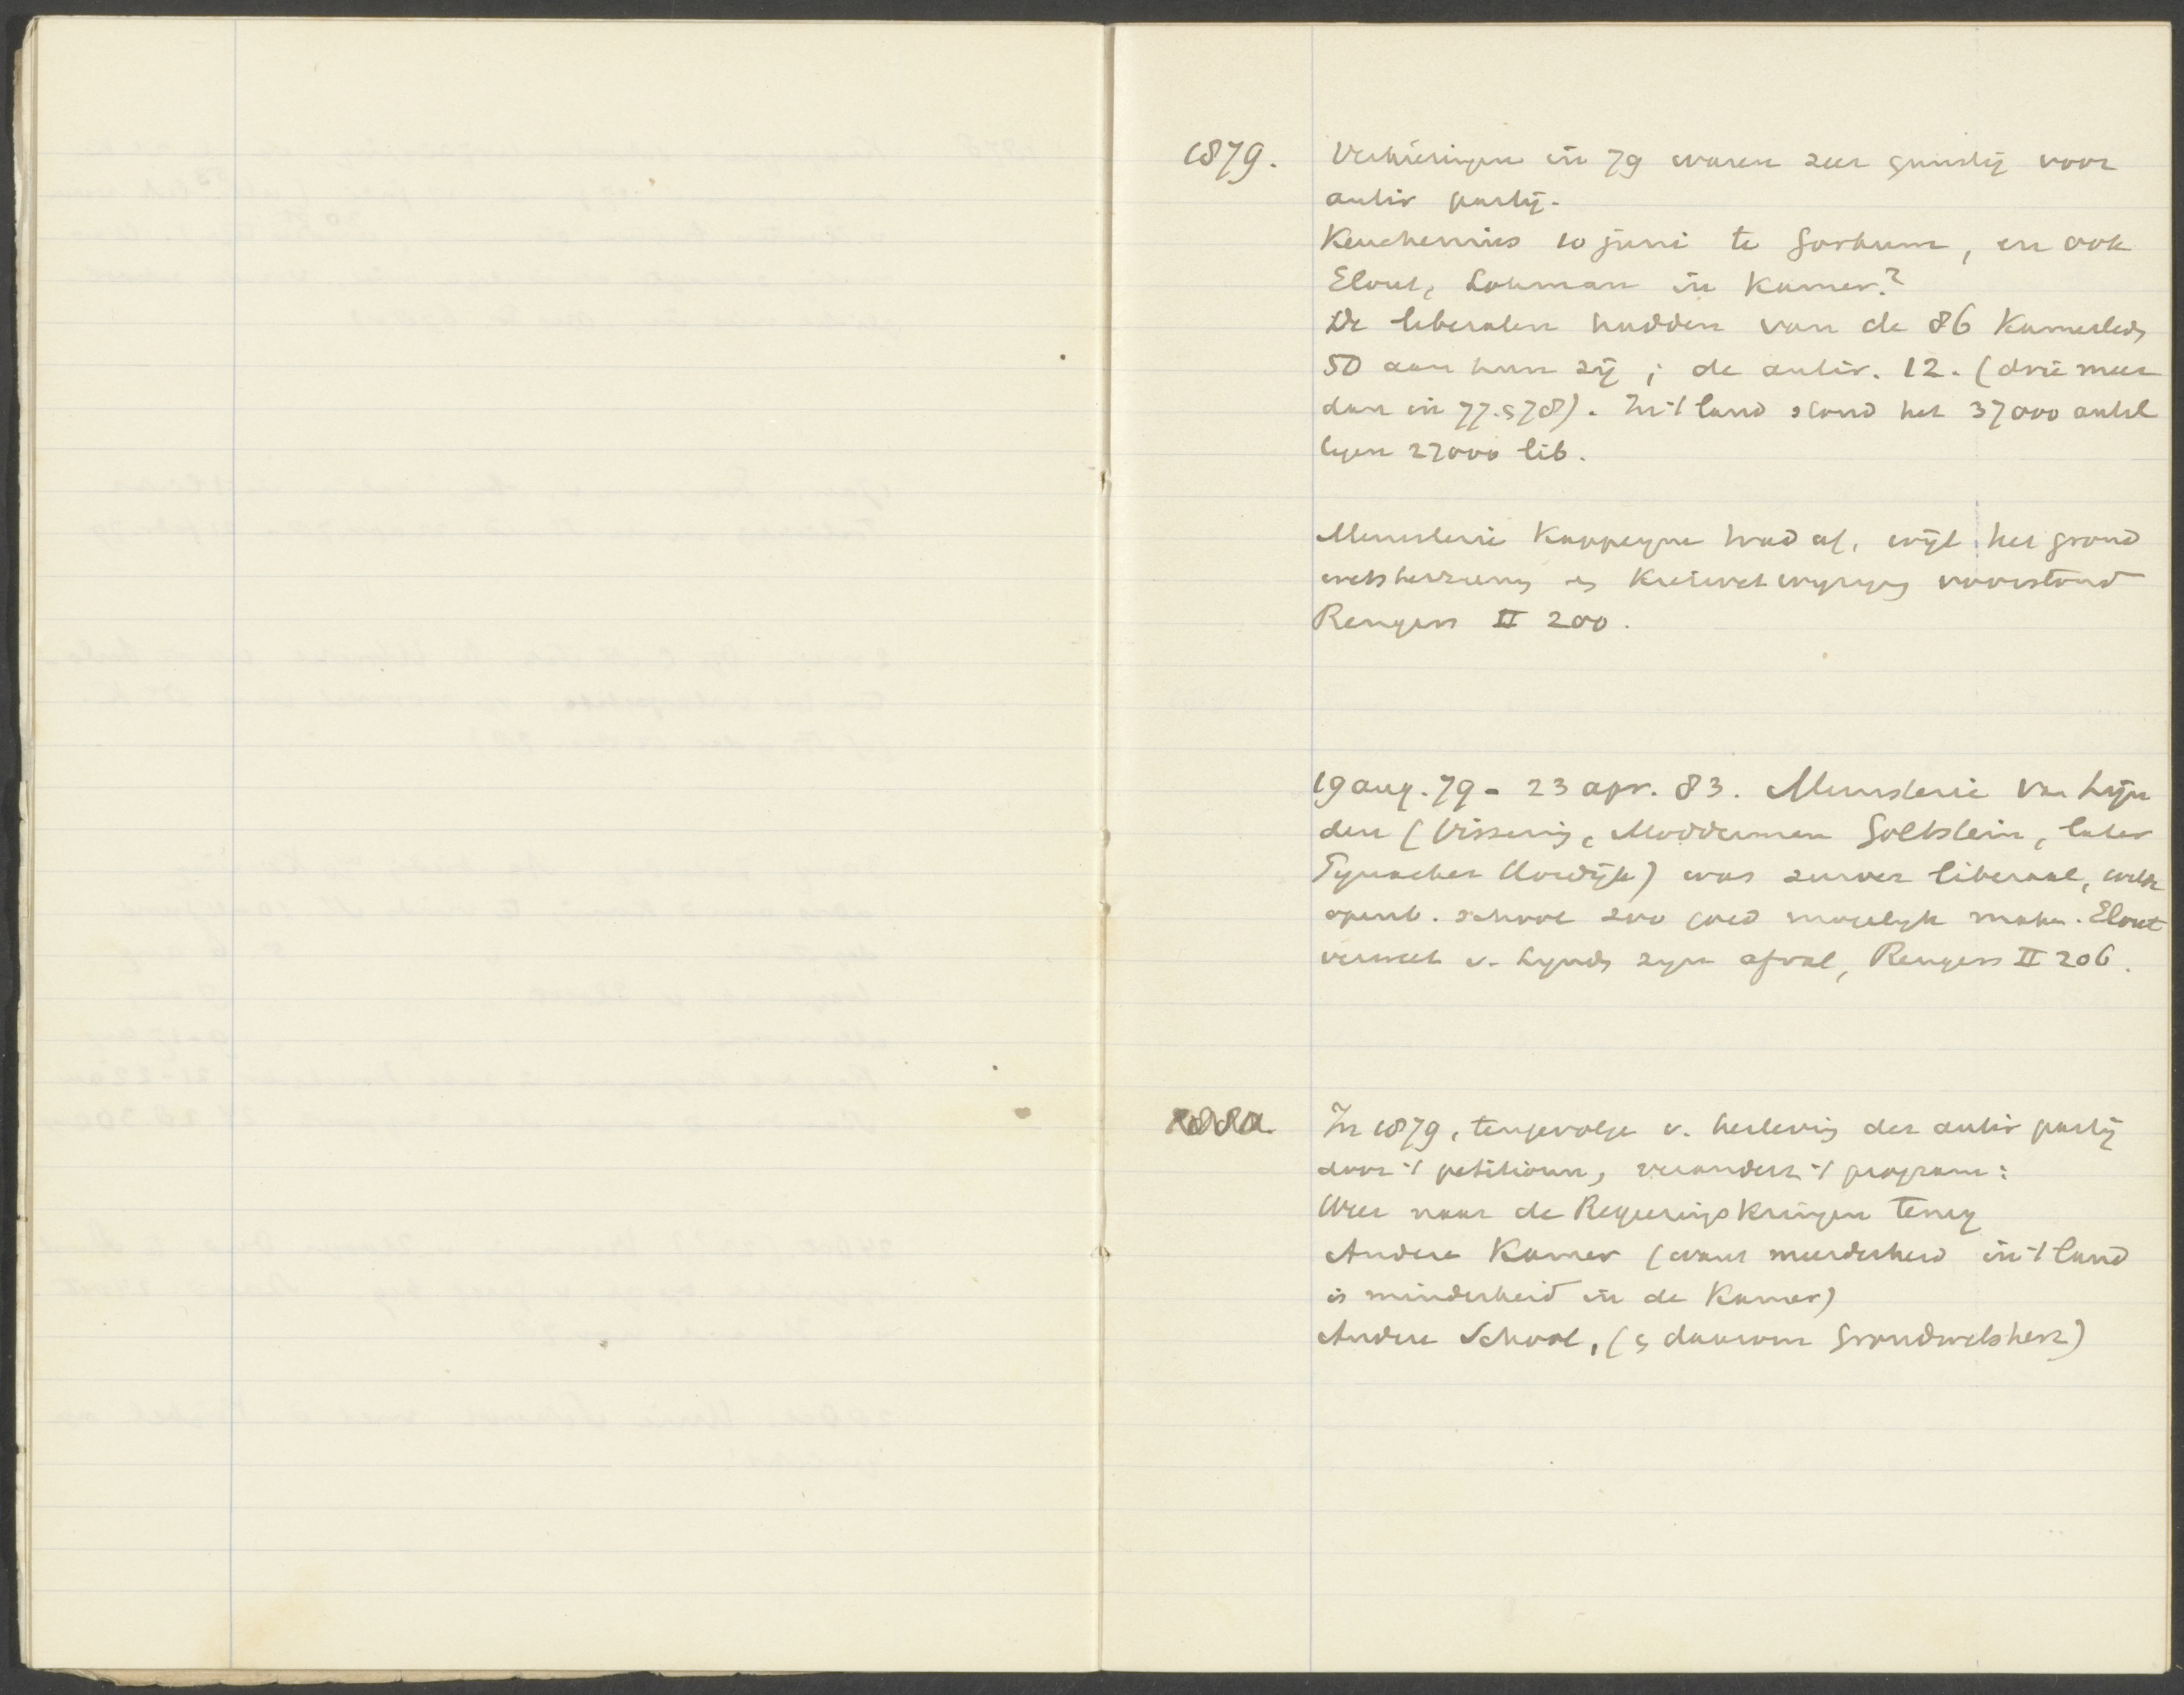 1879. Verkiezingen in 79 waren zeer gunstig voor
antir partij.
Keuchenius 10 juni te Gorkum, en ook
Elout, Lohman in Kamer?
De liberalen hadden van de 86 Kamerleden
50 aan hun zij; de antir. 12. (drie meer
dan in 77 en 78). In 't land stond het 37000 antel
tegen 27000 lib.
Ministerie Kappeyne trad af, wijl het grond
wetsherziening en Kieswetwijziging voorstond
Rengers II 200.
19 aug. 79 - 23 apr. 83. Ministerie Van Lijn
den (Vissering, Modderman Goltstein, later
Tynacker Nordijk) was zuiver liberaal, wilde
openb. school zoo goed mogelijk maken. Elout
verweet v. Lynden zijn afval, Rengers II 206.
In 1879, tengevolge v. herleving der antir partij
door 't petitionn, verandert 't program:
Weer naar de Regeeringskringen terug
Andere Kamer (want meerderheid in 't land
is minderheid in de Kamer)
Andere School, (en daarom Grondwetsherz)